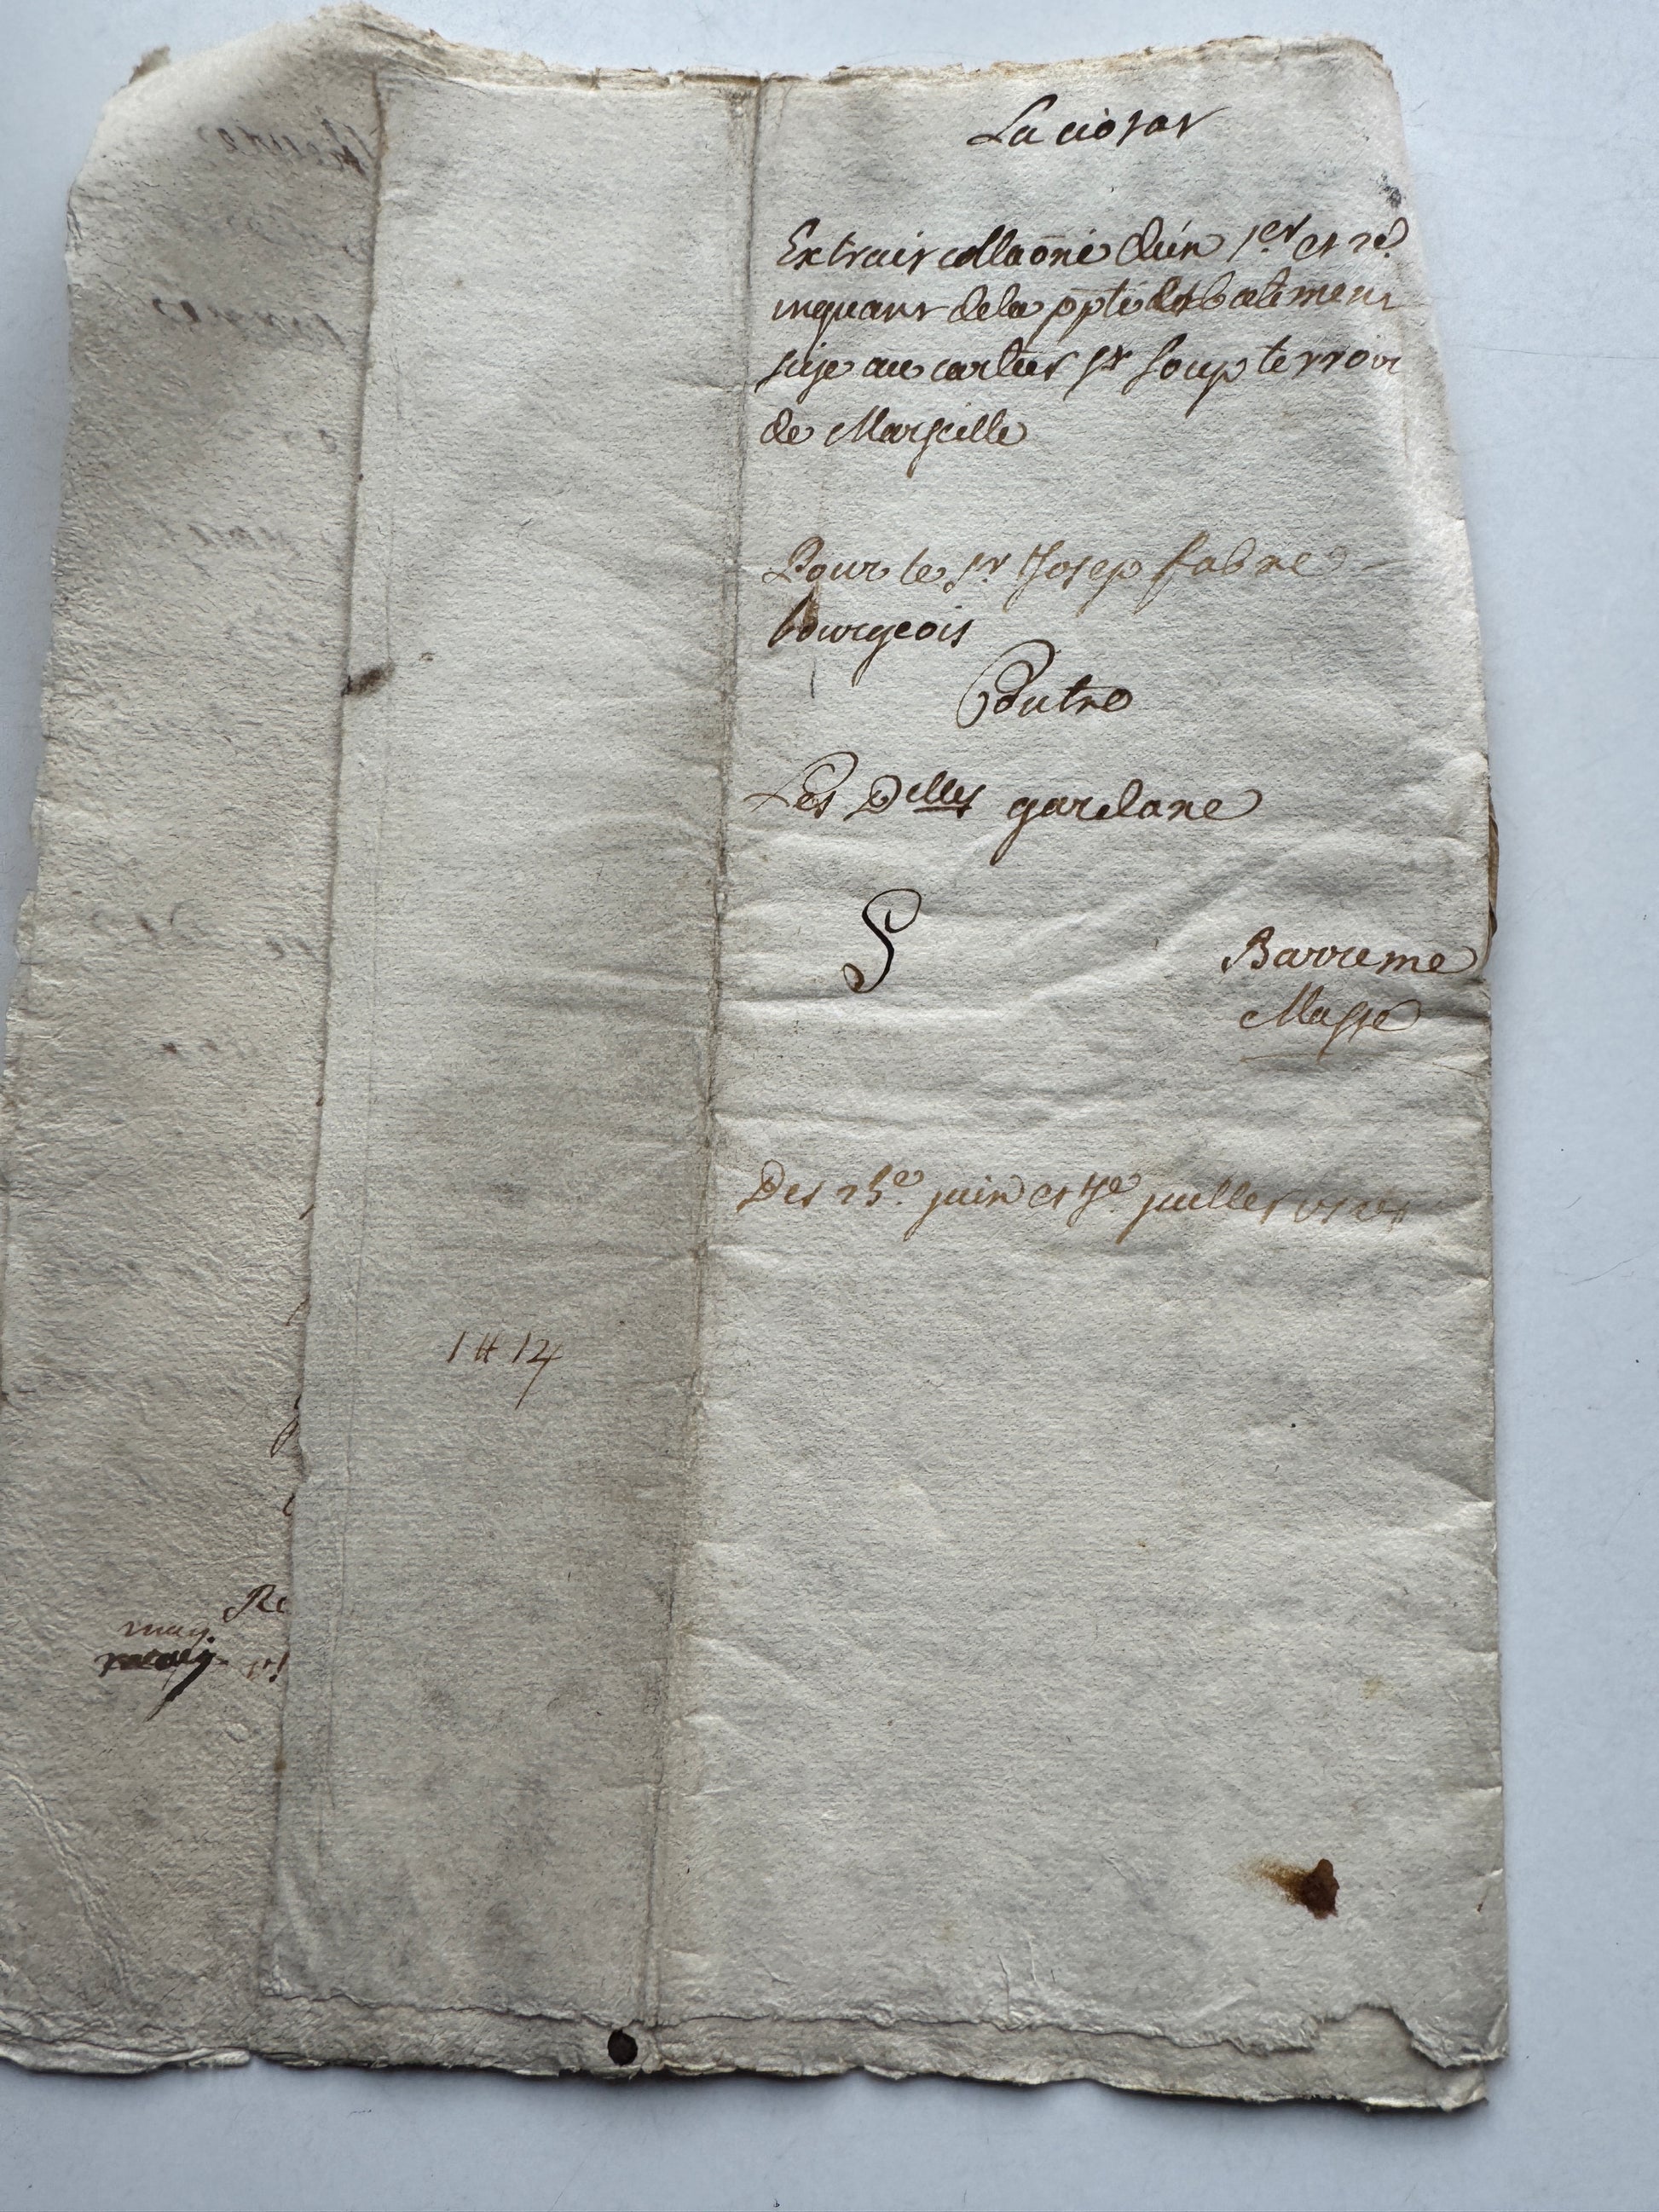 La ciotat
Extrait collaõné d'un 1er et 2d
inquant de la ppté des batiments
size au cartier st Loup terroir
de Marseille
Pour le sr Josep fabre
bourgeois
Contre
Les Delles gardane
Barreme
Masse
Des 25e juin et 7e juillet
1 # 14
Re
may